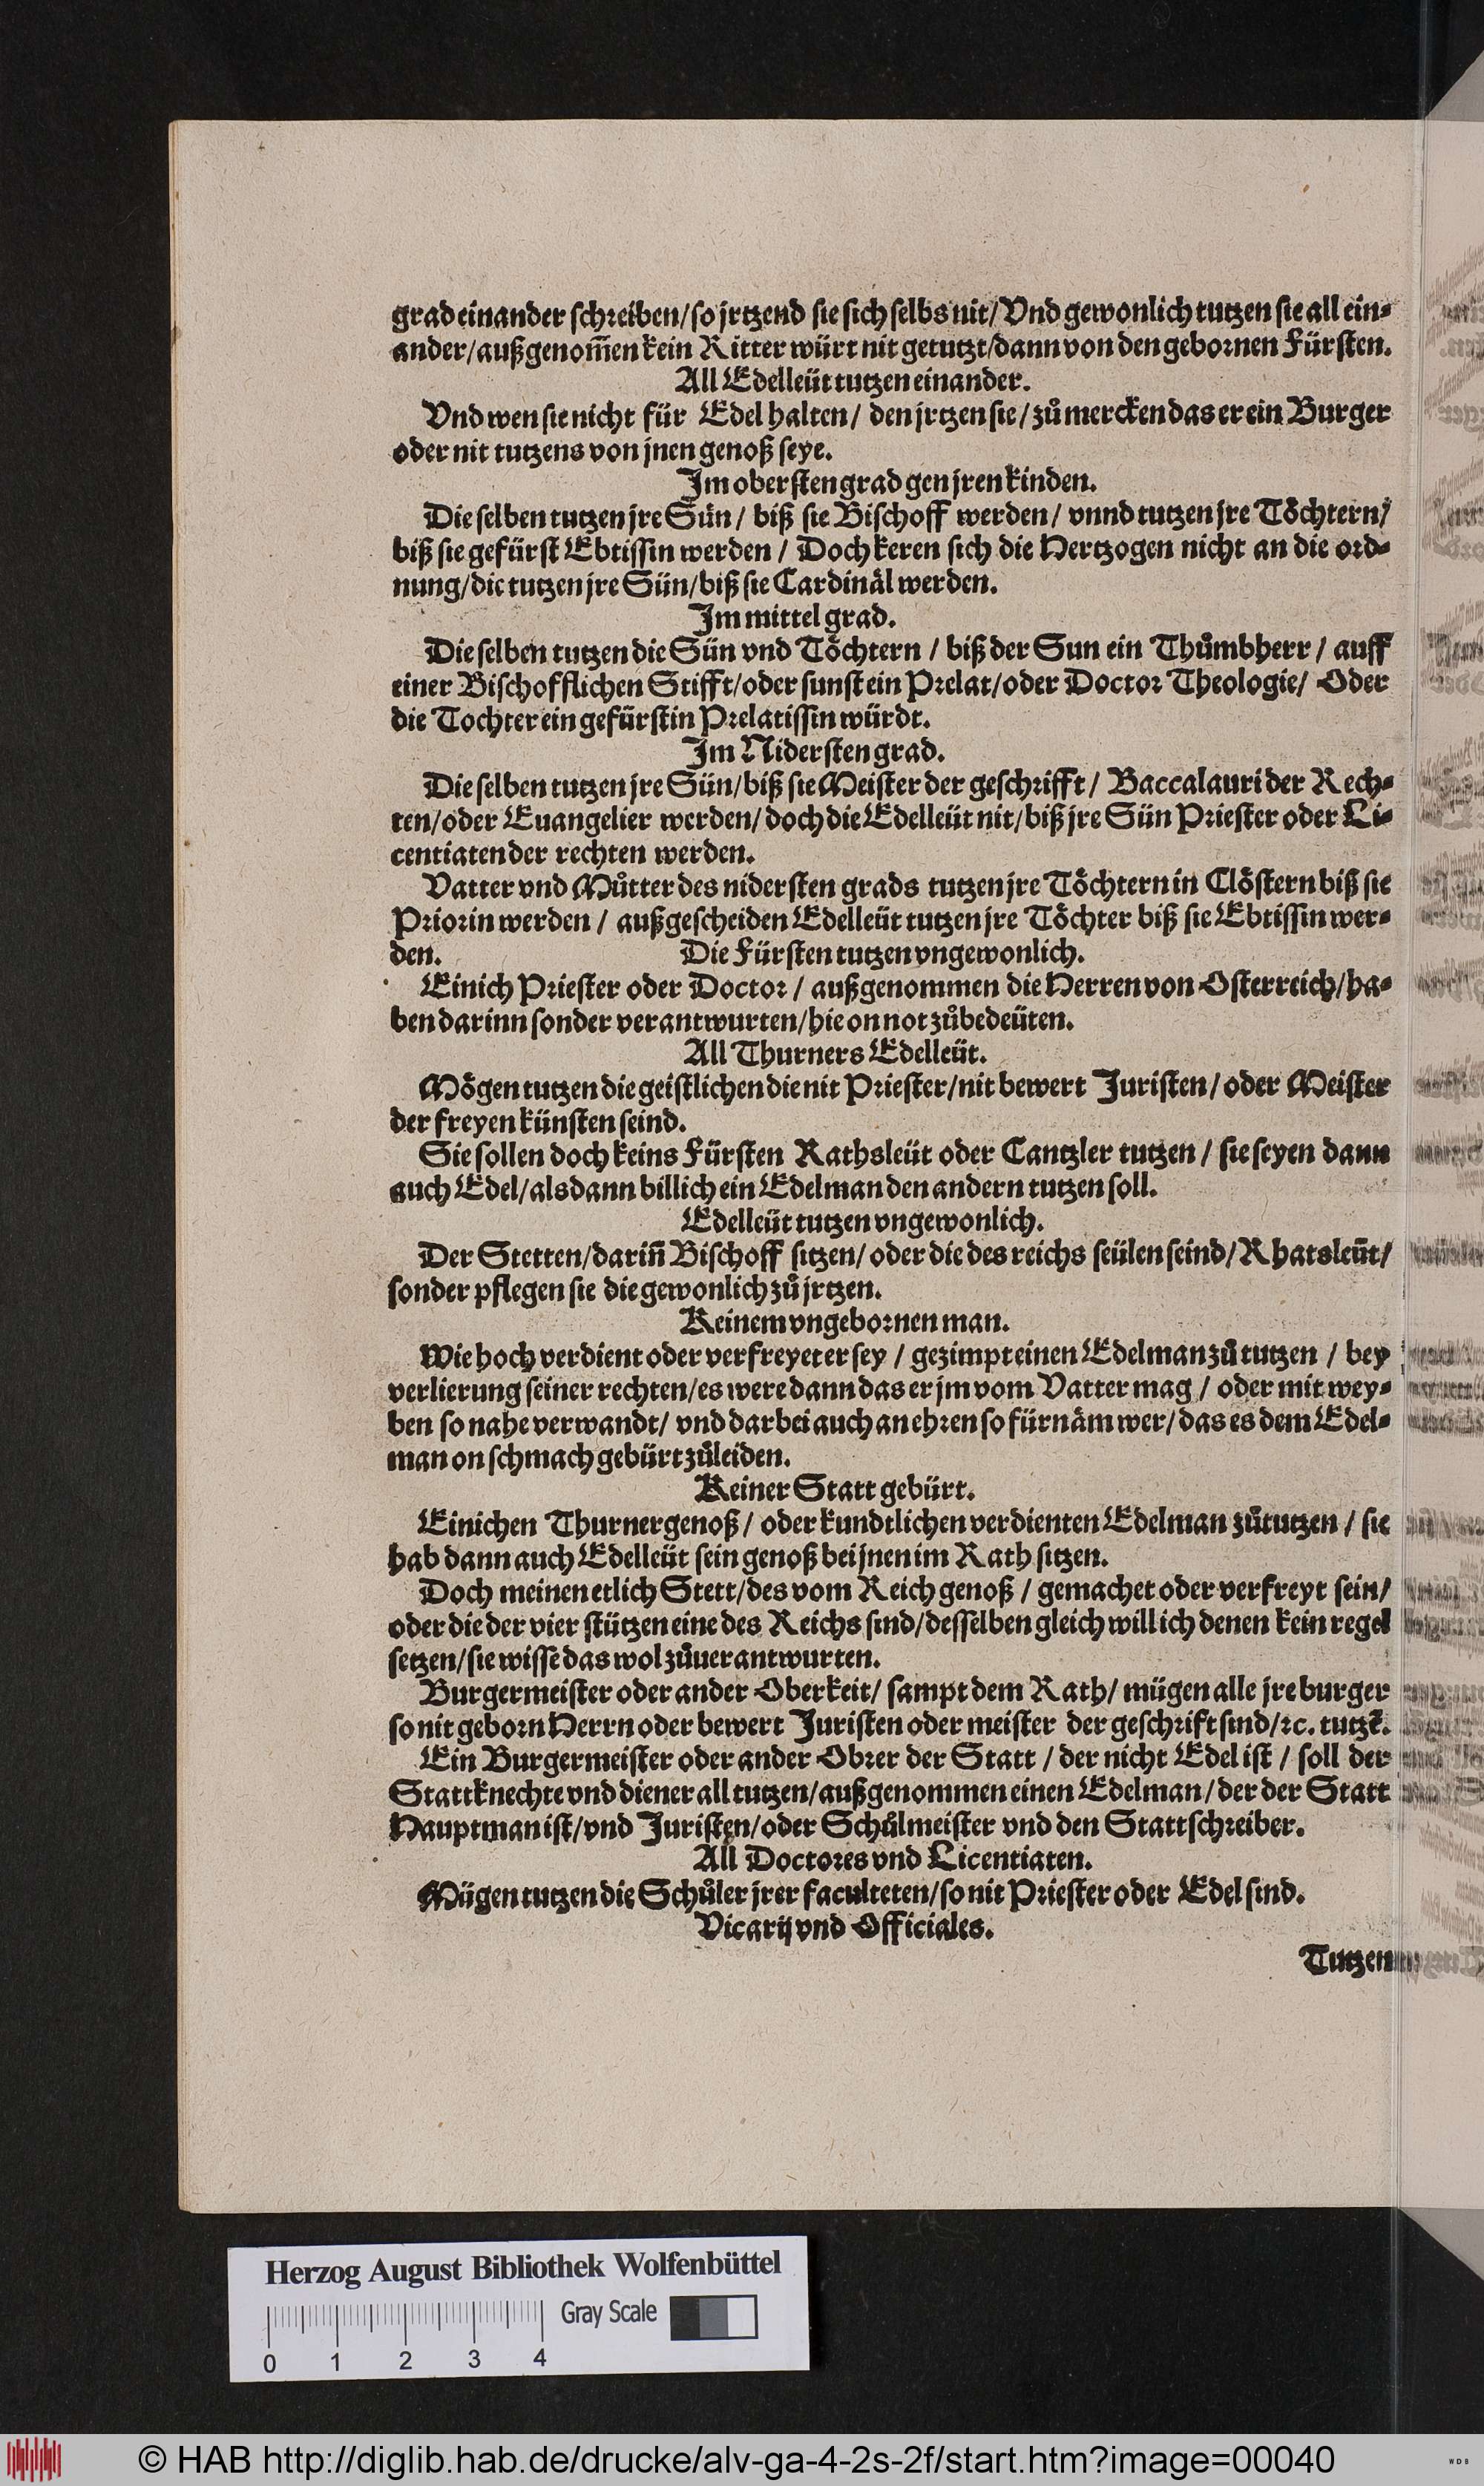 grad einander schreiben/ so jrtzend sie sich selbs nit/ Vnd gewonlich tutzen sie all ein-
ander/ außgenom̃en kein Ritter würt nit getutzt/ dann von den gebornen Fürsten.
All Edelleüt tutzen einander.
Vnd wen sie nicht für Edel halten/ den jrtzen sie/ zů mercken das er ein Burger
oder nit tutzens von jnen genoß seye.
Im obersten grad gen jren kinden.
Die selben tutzen jre Sün/ biß sie Bischoff werden/ vnnd tutzen jre Toͤchtern/
biß sie gefürst Ebtissin werden/ Doch keren sich die Hertzogen nicht an die ord-
nung/ die tutzen jre Sün/ biß sie Cardinaͤl werden.
Im mittel grad.
Die selben tutzen die Sün vnd Toͤchtern/ biß der Sun ein Thůmbherr/ auff
einer Bischofflichen Stifft/ oder sunst ein Prelat/ oder Doctor Theologie/ Oder
die Tochter ein gefürstin Prelatissin würdt.
Im Nidersten grad.
Die selben tutzen jre Sün/ biß sie Meister der geschrifft/ Baccalauri der Rech-
ten/ oder Euangelier werden/ doch die Edelleüt nit/ biß jre Sün Priester oder Li-
centiaten der rechten werden.
Vatter vnd Můtter des nidersten grads tutzen jre Toͤchtern in Cloͤstern biß sie
Priorin werden/ außgescheiden Edelleüt tutzen jre Toͤchter biß sie Ebtissin wer-
den. Die Fürsten tutzen vngewonlich.
Einich Priester oder Doctor/ außgenommen die Herren von Osterreich/ ha-
ben darinn sonder verantwurten/ hie on not zůbedeüten.
All Thurners Edelleüt.
Moͤgen tutzen die geistlichen die nit Priester/ nit bewert Juristen/ oder Meister
der freyen künsten seind.
Sie sollen doch keins Fürsten Rathsleüt oder Cantzler tutzen/ sie seyen dann
auch Edel/ als dann billich ein Edelman den andern tutzen soll.
Edelleüt tutzen vngewonlich.
Der Stetten/ dariñ Bischoff sitzen/ oder die des reichs seülen seind/ Rhatsleüt/
sonder pflegen sie die gewonlich zů jrtzen.
Keinem vngebornen man.
Wie hoch verdient oder verfreyet er sey/ gezimpt einen Edelman zů tutzen/ bey
verlierung seiner rechten/ es were dann das er jm vom Vatter mag/ oder mit wey-
ben so nahe verwandt/ vnd darbei auch an ehren so fürnaͤm wer/ das es dem Edel-
man on schmach gebürt zůleiden.
Keiner Statt gebürt.
Einichen Thurnergenoß/ oder kundtlichen verdienten Edelman zůtutzen/ sie
hab dann auch Edelleüt sein genoß bei jnen im Rath sitzen.
Doch meinen etlich Stett/ des vom Reich genoß/ gemachet oder verfreyt sein/
oder die der vier stützen eine des Reichs sind/ desselben gleich will ich denen kein regel
setzen/ sie wissẽ das wol zůuerantwurten.
Burgermeister oder ander Oberkeit/ sampt dem Rath/ mügen alle jre burger
so nit geborn Herrn oder bewert Juristen oder meister der geschrift sind/ ꝛc. tutzẽ.
Ein Burgermeister oder ander Obrer der Statt/ der nicht Edel ist/ soll der
Stattknechte vnd diener all tutzen/ außgenommen einen Edelman/ der der Statt
Hauptman ist/ vnd Juristen/ oder Schůlmeister vnd den Stattschreiber.
All Doctores vnd Licentiaten.
Mügen tutzen die Schůler jrer faculteten/ so nit Priester oder Edel sind.
Vicarij vnd Officiales.
Tutzen
Herzog August Bibliothek Wolfenbüttel
Gray Scale
0 1 2 3 4
© HAB http://diglib.hab.de/drucke/alv-ga-4-2s-2f/start.htm?image=00040
WDB